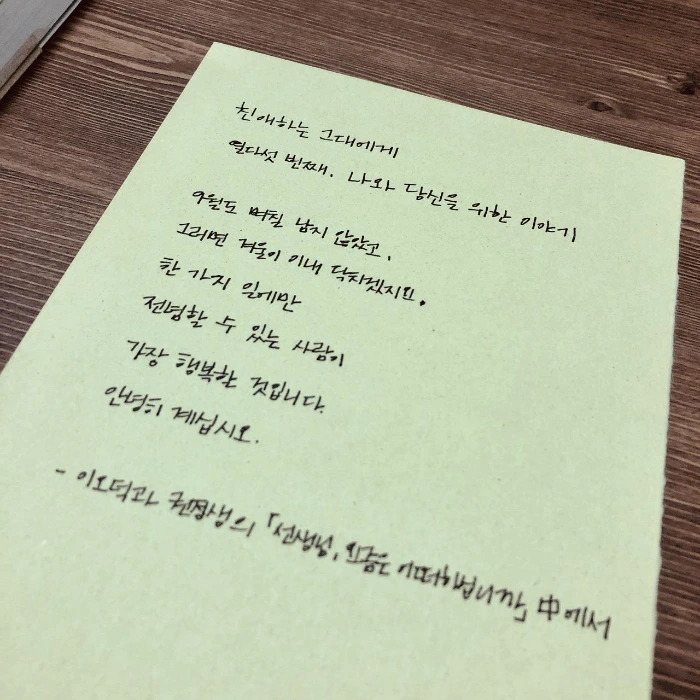 친애하는 그대에게
열다섯 번째. 나와 당신을 위한 이야기
9월도 며칠 남지 않았고,
그러면 겨울이 이내 닥치겠지요.
한 가지 일에만
전념할 수 있는 사람이
가장 행복한 것입니다.
안녕히 계십시오.
- 이오덕과 권정생의 「선생님, 요즘은 어떠하십니까」 中에서